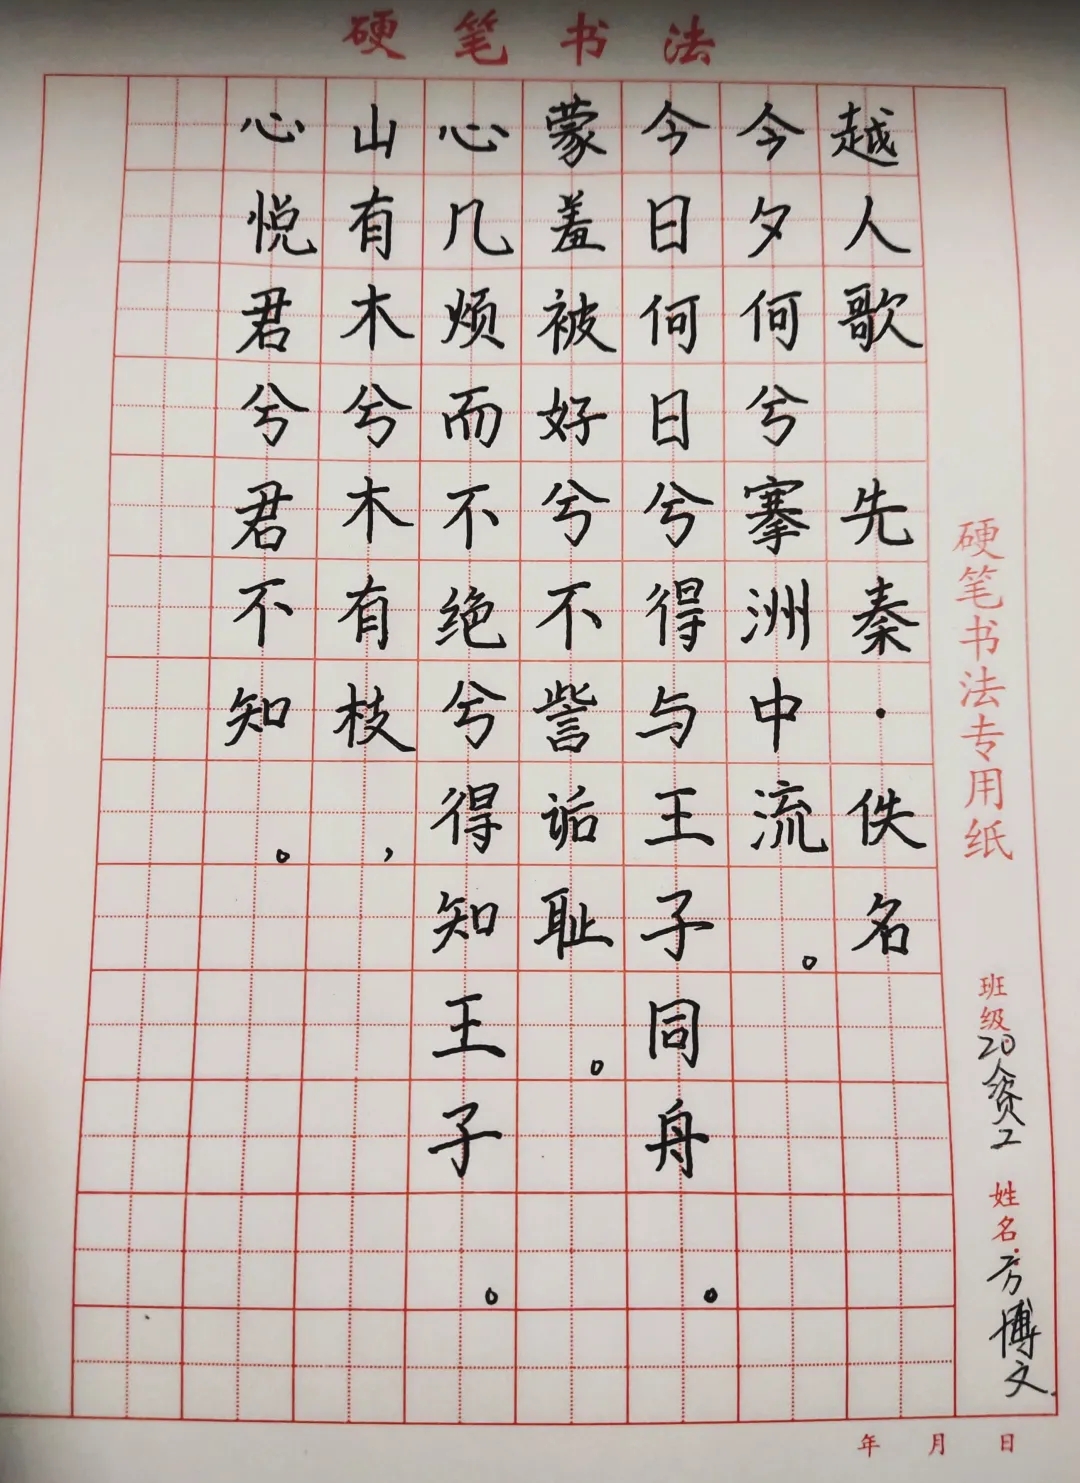 硬笔书法
越人歌 先秦·佚名
今夕何兮搴洲中流。
今日何日兮得与王子同舟。
蒙羞被好兮不訾诟耻。
心几烦而不绝兮得知王子。
山有木兮木有枝,
心悦君兮君不知。
硬笔书法专用纸
班级20人资工 姓名:方博文
年 月 日